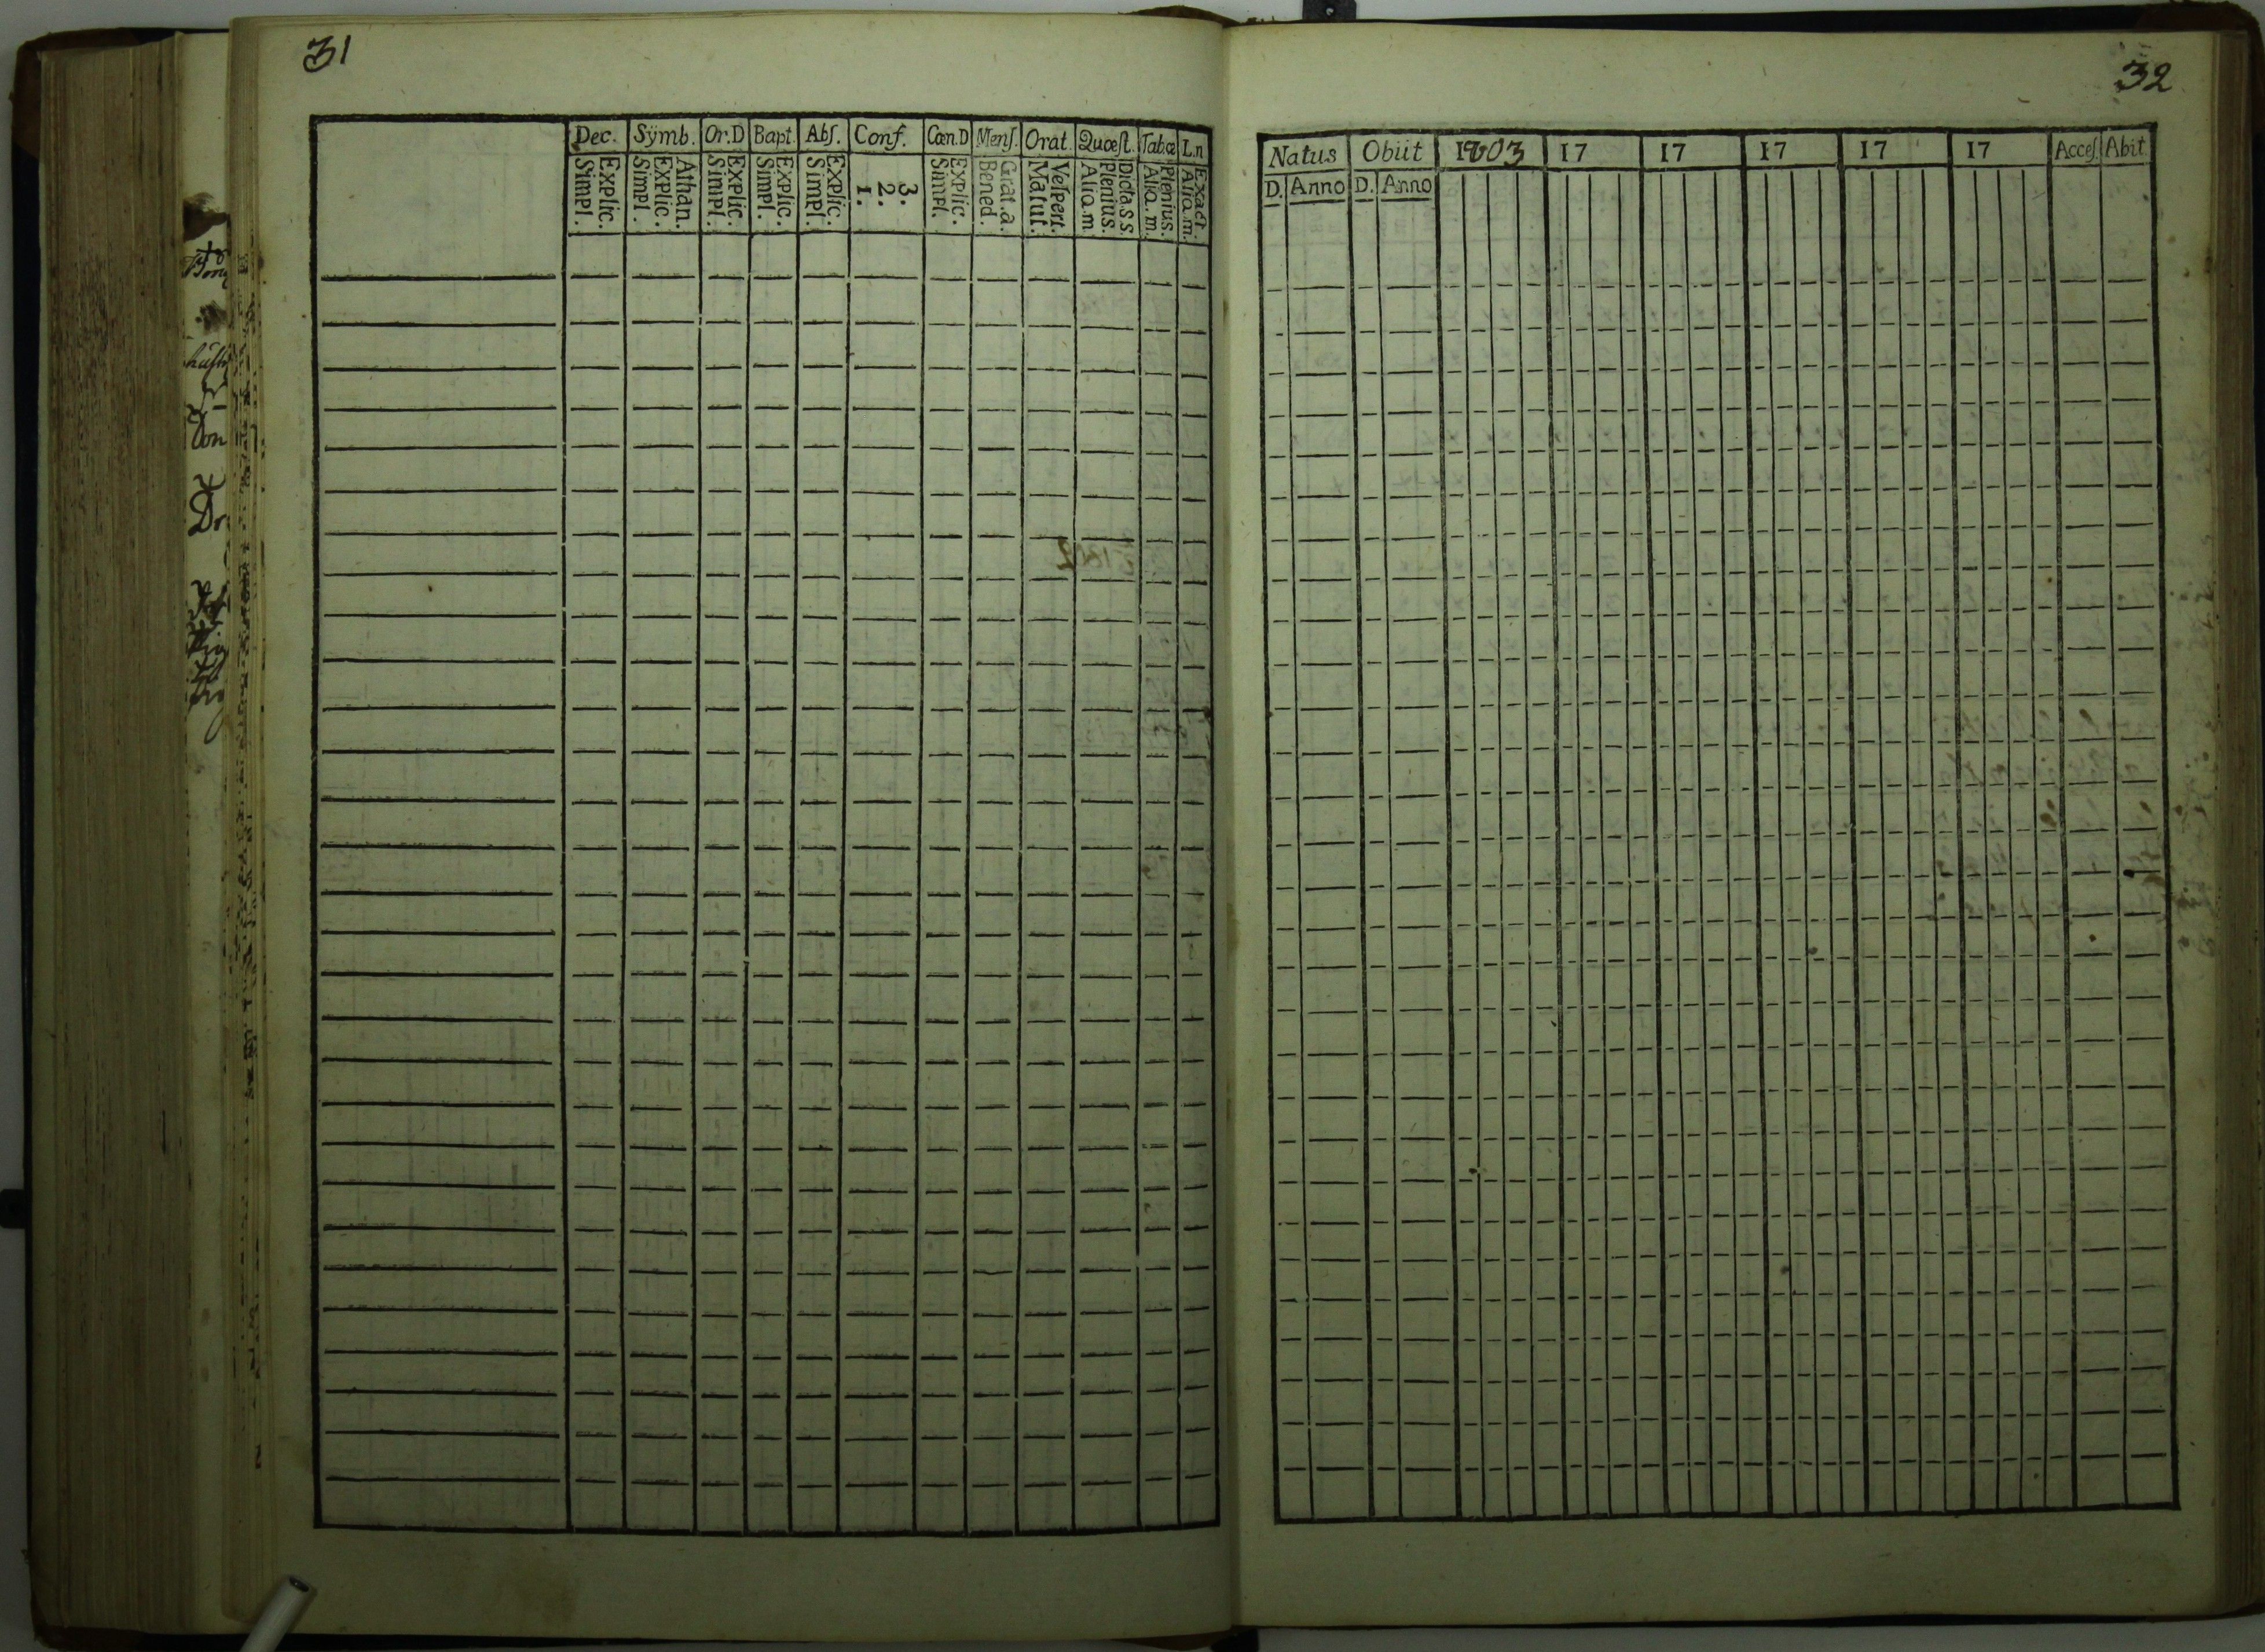 31
Dec. Sÿmb. Or.D Bapt. Abſ. Conf. Cœn.D Menſ. Orat. Quœſt. Tabœ L.n
Explic.
Simpl.
Athan.
Explic.
Simpl.
Explic.
Simpl.
Explic.
Simpl.
Explic.
Simpl.
3.
2.
1.
Explic.
Simpl.
Grat.a.
Bened.
Veſpert.
Matut.
Dicta.S.S.
Plenius.
Aliq.m
Plenius.
Aliq.m.
Exact.
Aliq.m.
32
Natus Obiit 1803 17 17 17 17 17 Acceſ. Abit.
D. Anno D. Anno